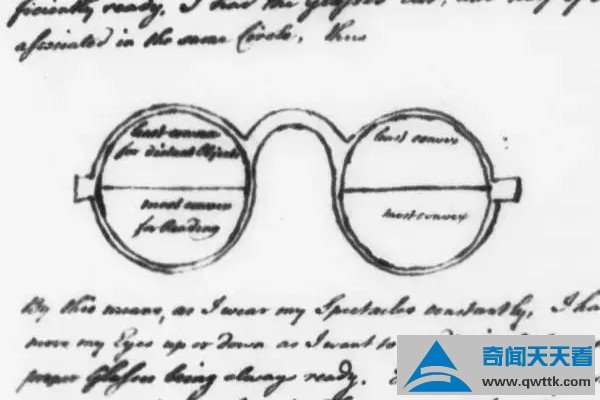 ficiently ready. I had the Glasses cut, and half of
associated in the same Circle, thus
least convex
for distant Objects
least convex
most convex
for Reading
most convex
By this means, as I wear my Spectacles constantly, I ha
move my Eyes up or down as I want to
proper Glasses being always ready.
奇闻天天看
www.qwttk.com